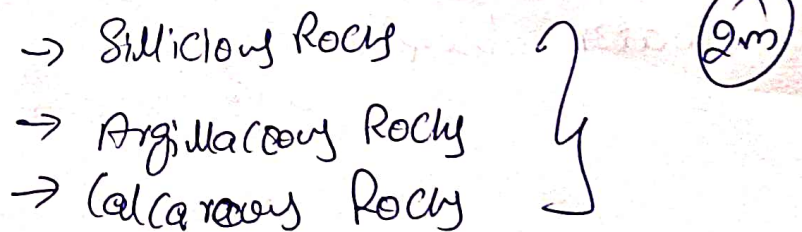 → Sillicious Rocks
→ Argillaceous Rocks
→ Calcareous Rocks
2m